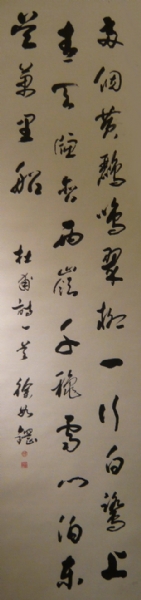 兩個黃鸝鳴翠柳一行白鷺上
青天牕含西嶺千穐雪門泊東
吳萬里船
杜甫詩一首 徐